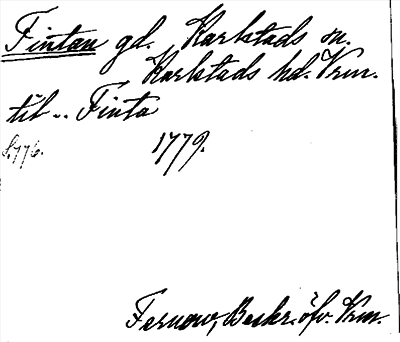 Fintan gd. Karlstads sn.
Karlstads hd. Vrm.
till.. Finta
S. 776. 1779.
Fernow, Beskr. öfv. Vrm.